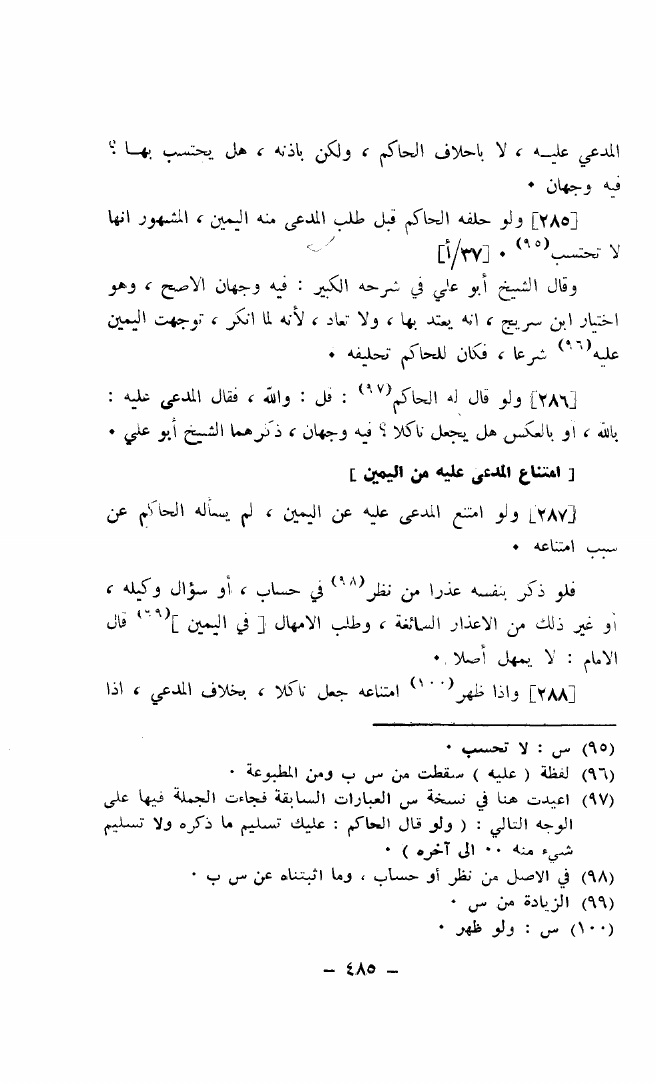 المدعي عليـه ، لا باحلاف الحاكم ، ولكن باذنه ، هل يحتسب بهـا ؟
فيه وجهان ٠
[٢٨٥] ولو حلفه الحاكم قبل طلب المدعى منه اليمين ، المشهور انها
لا تحتسب(٩٥) ٠ [٣٧/أ]
وقال الشيخ أبو علي في شرحه الكبير : فيه وجهان الاصح ، وهو
اختيار ابن سريج ، انه يعتد بها ، ولا تعاد ، لأنه لما انكر ، توجهت اليمين
عليه(٩٦) شرعا ، فكان للحاكم تحليفه ٠
[٢٨٦] ولو قال له الحاكم(٩٧) : قل : والله ، فقال المدعى عليه :
بالله ، او بالعكس هل يجعل ناكلا ؟ فيه وجهان ، ذكرهما الشيخ أبو علي ٠
[ امتناع المدعى عليه من اليمين ]
[٢٨٧] ولو امتنع المدعى عليه عن اليمين ، لم يسأله الحاكم عن
سبب امتناعه ٠
فلو ذكر بنفسه عذرا من نظر(٩٨) في حساب ، أو سؤال وكيله ،
أو غير ذلك من الاعذار السائغة ، وطلب الامهال [ في اليمين ](٦٩) قال
الامام : لا يمهل أصلا ٠
[٢٨٨] واذا ظهر(١٠٠) امتناعه جعل ناكلا ، بخلاف المدعي ، اذا
(٩٥) س : لا تحسب ٠
(٩٦) لفظة ( عليه ) سقطت من س ب ومن المطبوعة ٠
(٩٧) اعيدت هنا في نسخة س العبارات السابقة فجاءت الجملة فيها على
الوجه التالي : ( ولو قال الحاكم : عليك تسليم ما ذكره ولا تسليم
شيء منه ٠٠ الى آخره ) ٠
(٩٨) في الاصل من نظر أو حساب ، وما اثبتناه عن س ب ٠
(٩٩) الزيادة من س ٠
(١٠٠) س : ولو ظهر ٠
– ٤٨٥ –